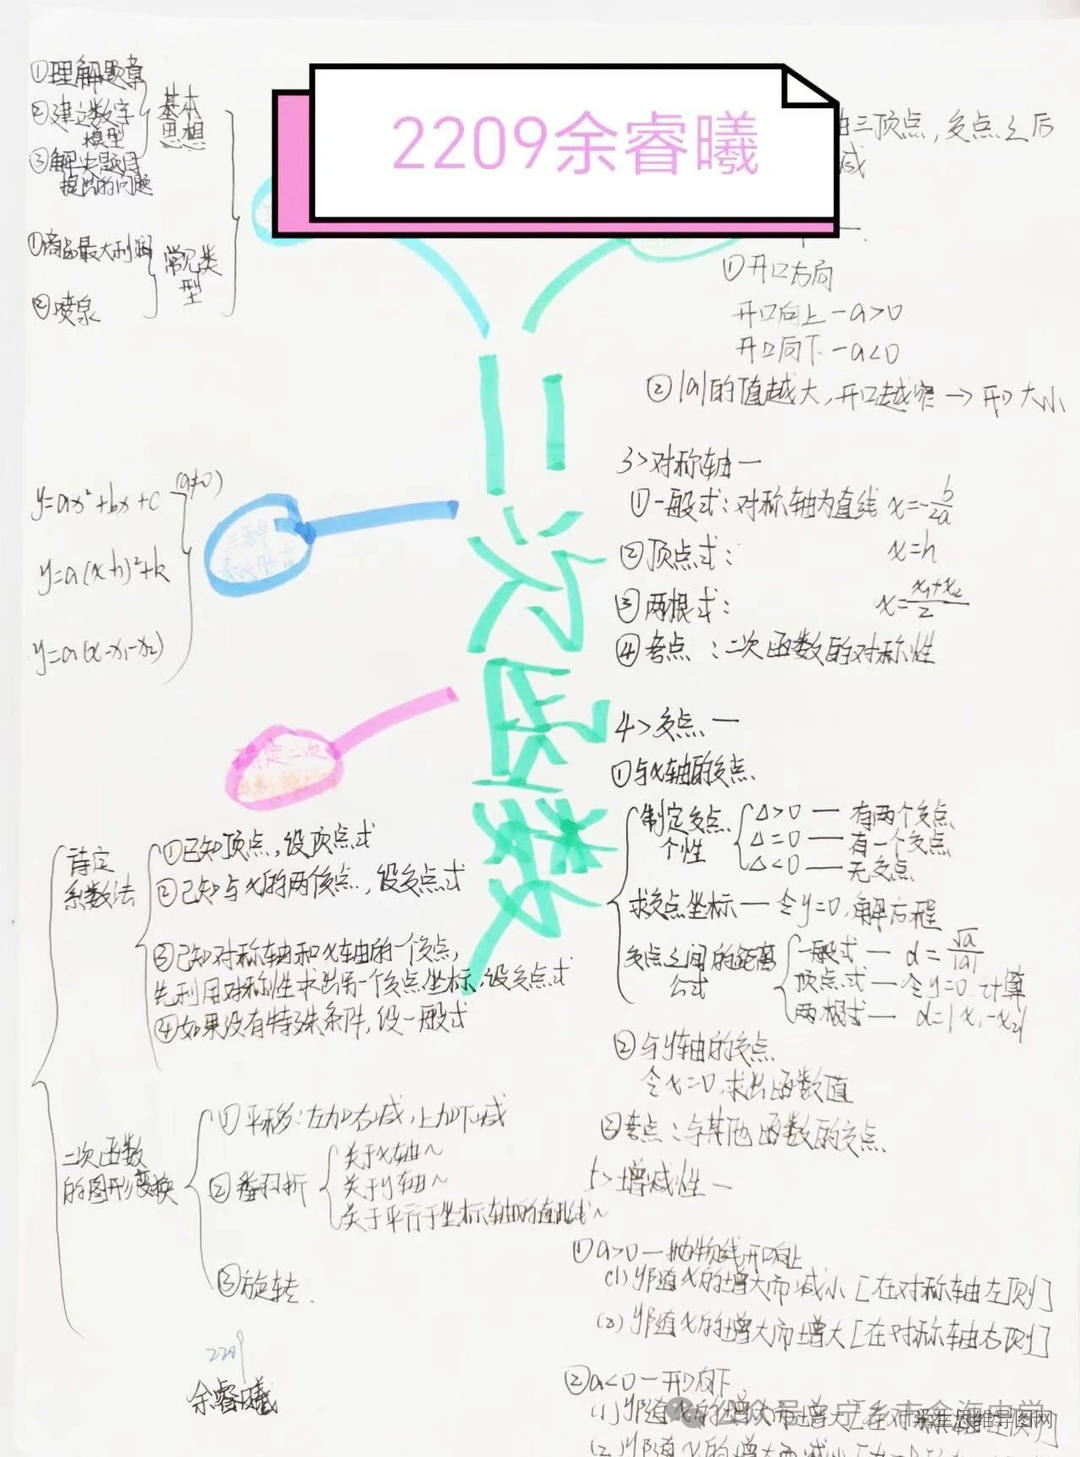 2209余睿曦
①理解题意
②建立数字
模型
③解决题目
提出的问题
基本
思想
①商品最大利润
②喷泉
常见类
型
三顶点,交点之后
减
①开口方向
开口向上-a>0
开口向下-a<0
②|a|的值越大,开口越窄→开口大小
二次函数
y=ax²+bx+c
(a≠0)
y=a(x-h)²+k
y=a(x-x₁-x₂)
三种
定二次
3>对称轴一
①一般式:对称轴为直线 x=-b/2a
②顶点式: x=h
③两根式: x=x₁+x₂/2
④考点:二次函数的对称性
4>交点一
①与x轴的交点
制定交点
个性
△>0—有两个交点
△=0—有一个交点
△<0—无交点
求交点坐标—令y=0,解方程
交点之间的距离
公式
一般式—d=√a/|a|
顶点式—令y=0计算
两根式—d=|x₁-x₂|
②与y轴的交点
令x=0,求出函数值
③考点:与其他函数的交点
5>增减性一
①a>0一抛物线开口向上
(1)y随x的增大而减小[在对称轴左侧]
(2)y随x的增大而增大[在对称轴右侧]
②a<0一开口向下
待定
系数法
①已知顶点,设顶点式
②已知与x的两交点,设交点式
③已知对称轴和x轴的一个交点,
先利用对称性求出另一个交点坐标,设交点式
④如果没有特殊条件,设一般式
二次函数
的图形变换
①平移:左加右减,上加下减
②番羽折
关于x轴~
关于y轴~
关于平行于坐标轴的直线~
③旋转.
2209
余睿曦